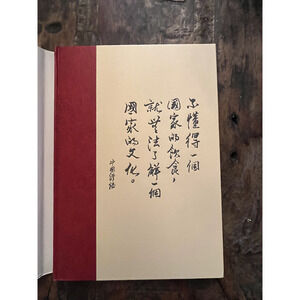 不懂得一個
國家的飲食，
就無法了解一個
國家的文化。
中國諺語